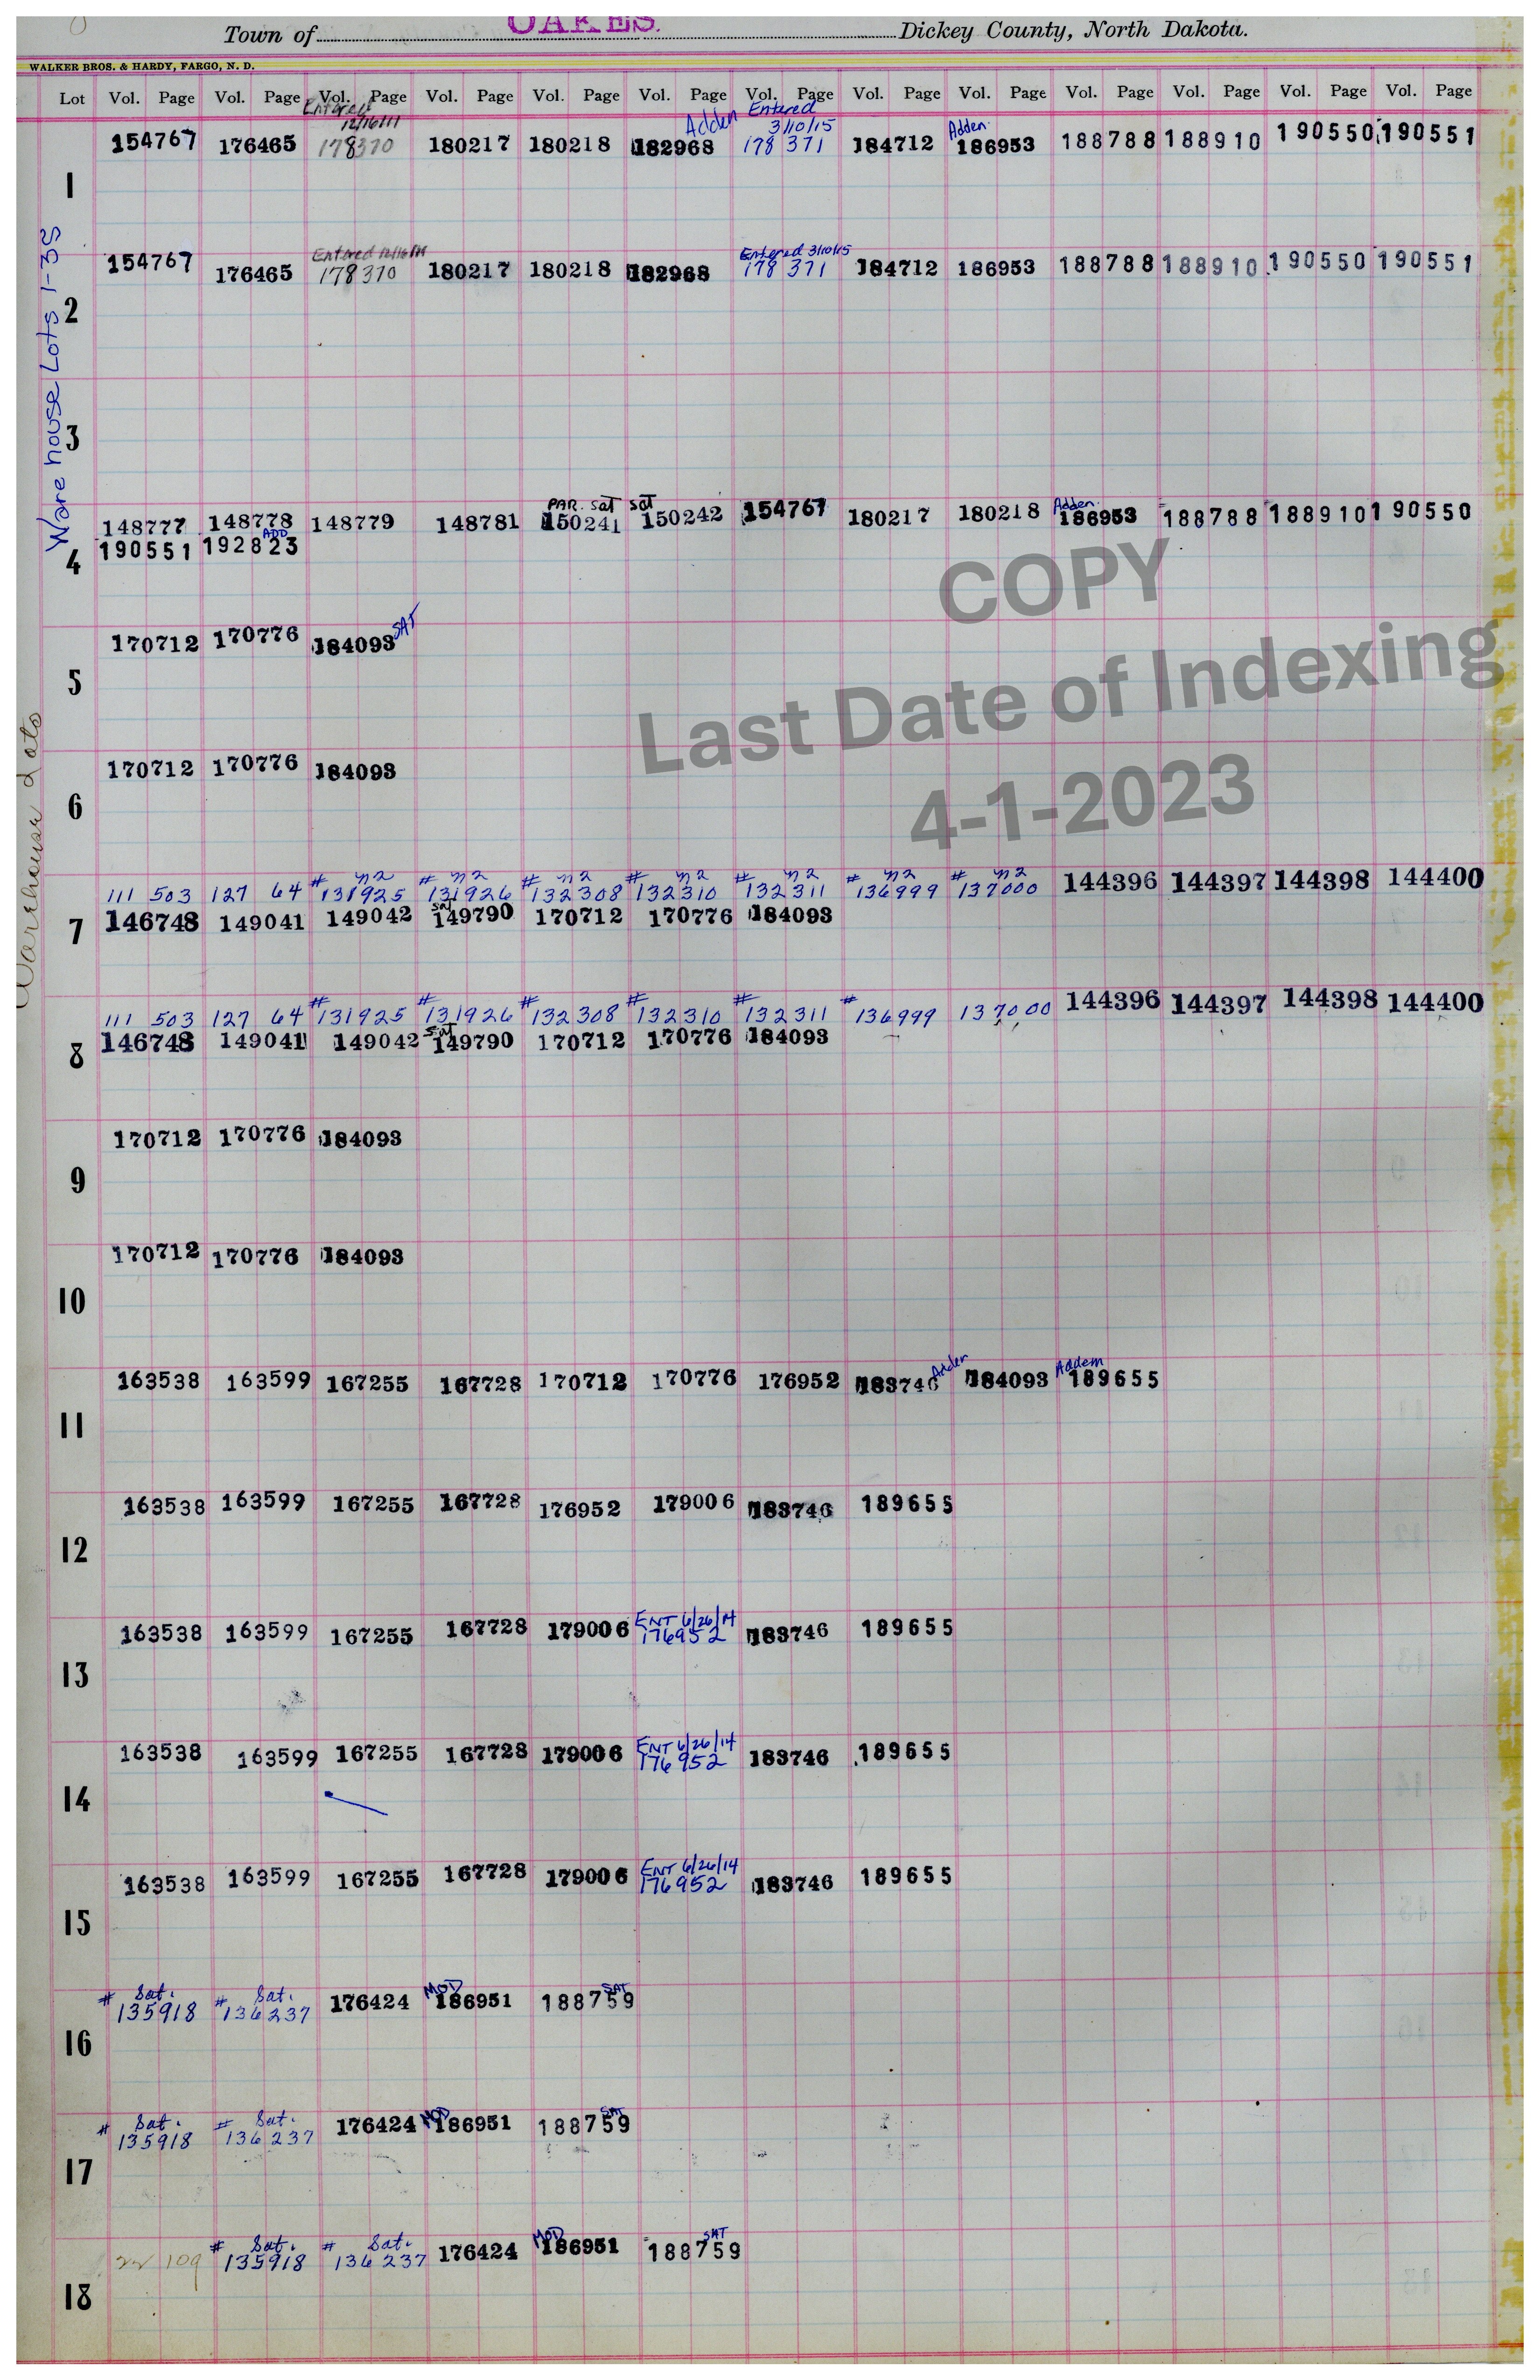 Town of OAKES. Dickey County, North Dakota.
WALKER BROS. & HARDY, FARGO, N. D.
Lot Vol. Page Vol. Page Vol. Page Vol. Page Vol. Page Vol. Page Vol. Page Vol. Page Vol. Page Vol. Page Vol. Page Vol. Page Vol. Page
Entered 12/16/11 Adden Entered 3/10/15 Adden.
154767 176465 178370 180217 180218 182968 178 371 184712 186953 188788 188910 190550 190551
1
Ware house Lots 1-35
Entered 12/16/11 Entered 3/10/15
154767 176465 178370 180217 180218 182968 178 371 184712 186953 188788 188910 190550 190551
2
3
PAR. Sat Sat Adden.
148777 148778 148779 148781 150241 150242 154767 180217 180218 186953 188788 188910 190550
ADD
190551 192823
4
COPY
Last Date of Indexing
4-1-2023
SAT
170712 170776 184093
5
Warehouse Lots
170712 170776 184093
6
# n2 # n2 # n2 # n2 # n2 # n2 # n2
111 503 127 64 131925 131926 132308 132310 132311 136999 137000 144396 144397 144398 144400
sat
146748 149041 149042 149790 170712 170776 184093
7
# # # # # #
111 503 127 64 131925 131926 132308 132310 132311 136999 137000 144396 144397 144398 144400
sat
146748 149041 149042 149790 170712 170776 184093
8
170712 170776 184093
9
170712 170776 184093
10
Adden Addem
163538 163599 167255 167728 170712 170776 176952 183746 184093 189655
11
163538 163599 167255 167728 176952 179006 183746 189655
12
ENT 6/26/14
163538 163599 167255 167728 179006 176952 183746 189655
13
ENT 6/26/14
163538 163599 167255 167728 179006 176952 183746 189655
14
ENT 6/26/14
163538 163599 167255 167728 179006 176952 183746 189655
15
# Sat. # Sat. MOD SAT
135918 136237 176424 186951 188759
16
# Sat. # Sat. MOD SAT
135918 136237 176424 186951 188759
17
# Sat. # Sat. MOD SAT
22 109 135918 136237 176424 186951 188759
18